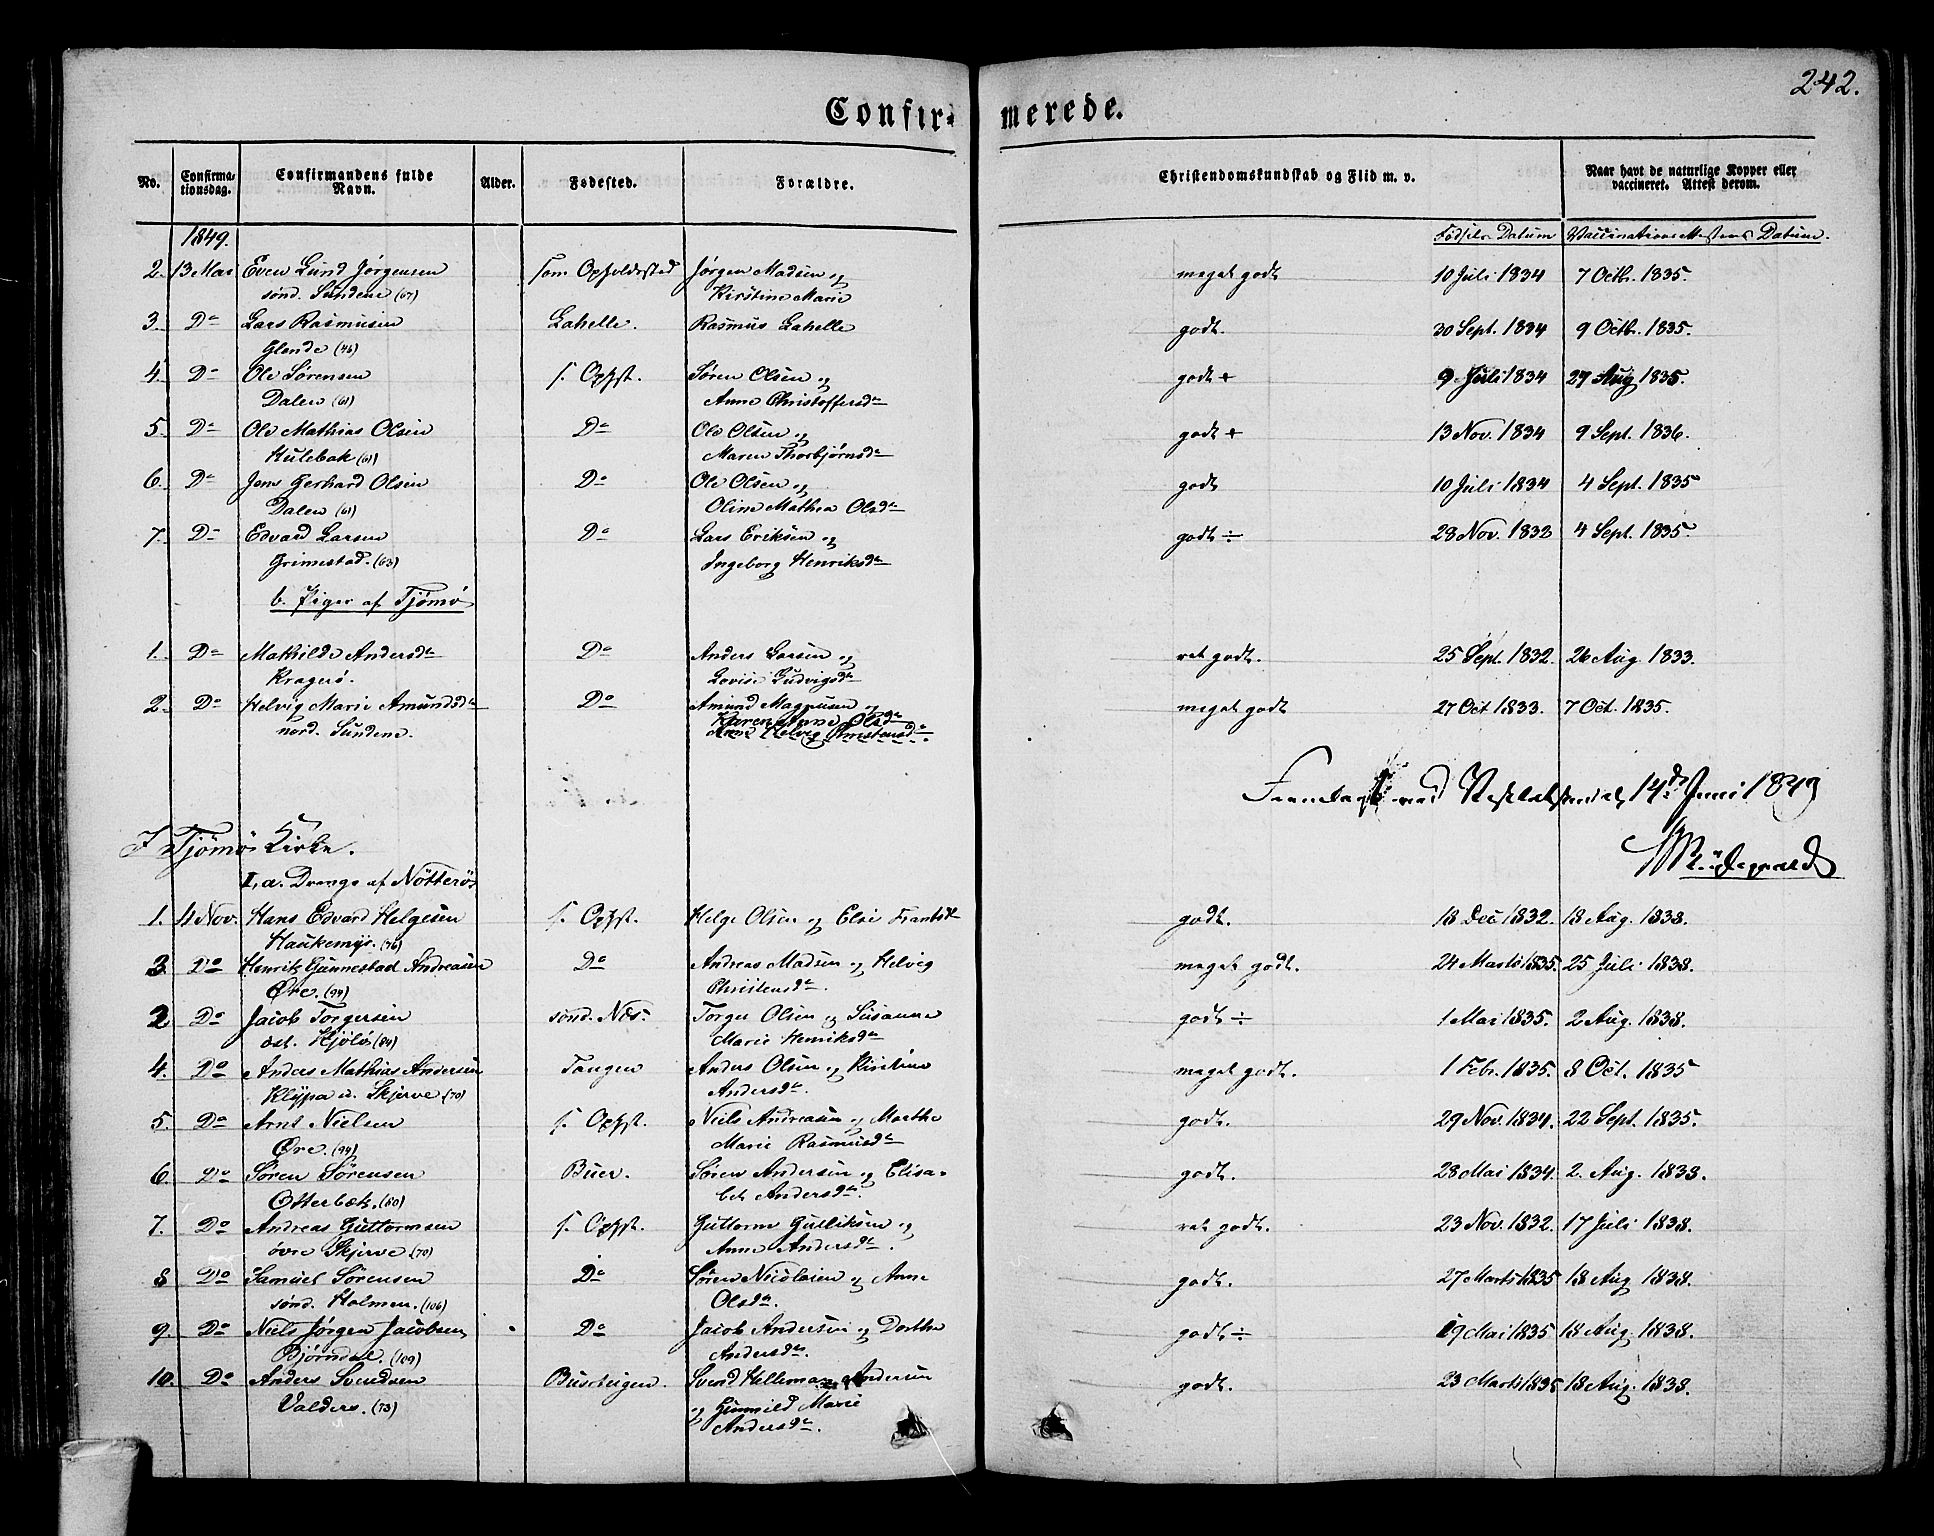 242.
Confir- merede.
No. Confirma- tionsdag. Confirmandens fulde Navn. Alder. Fødested. Forældre. Christendomskundskab og Flid m. v. Naar havt de naturlige Kopper eller vaccineret. Attest derom.
1849. Fødsels Datum Vaccinations Attestens Datum.
2. 13 Mai Even Lund Jørgensen Som Opholdssted Jørgen Madsen og meget godt 10 Juli 1834 7 Octbr. 1835.
sönd. Sundene (67) Kirstine Marie
3. Do Lars Rasmusen Lahelle. Rasmus Lahelle godt. 30 Sept. 1834 9 Octbr. 1835.
Glende (46)
4. Do Ole Sørensen s. Ophst. Søren Olsen og godt + 9 Juli 1834 27 Aug 1835.
Dalen (61) Anne Christoffersdr
5. Do Ole Mathias Olsen Do Ole Olsen og godt + 13 Nov. 1834 9 Sept. 1836.
Hulebak (61) Maren Thorbjørnsdr
6. Do Jens Gerhard Olsen Do Ole Olsen og godt 10 Juli 1834 4 Sept. 1835
Dalen (61) Oline Mathea Olsdr
7. Do Edvard Larsen Do Lars Eriksen og godt ÷ 28 Nov. 1832 4 Sept. 1835.
Grimestad. (63) Ingeborg Henriksdr
b. Piger af Tjömö
1. Do Mathilde Andersdr Do Anders Larsen og ret godt. 25 Sept. 1832. 26 Aug 1833.
Kragerö. Lovise Ludvigsdr
2. Do Helvig Marie Amundsdr Do Amund Magnusen og meget godt 27 Oct 1833. 7 Oct. 1835.
nord. Sundene. Karen Anne Olsdr
Anne Helvig Christensdr
14de Juni 1849
I Tjömö Kirke.
I, a. Drenge af Nötterö
1. 4 Nov. Hans Edvard Helgesen s. Ophst. Helge Olsen og Elie Frantsdr godt. 18 Dec 1832. 18 Aug. 1838.
Haukemyr. (76)
3. Do Henrik Gunnestad Andreasen Do Andreas Madsen og Helvig meget godt. 24 Marts 1835. 25 Juli 1838.
Øre. (94) Christensdr.
2 Do Jacob Torgersen sönd. Næs. Torger Olsen og Susanne godt ÷ 1 Mai 1835. 2 Aug. 1838.
øst. Hjølö (84) Marie Henriksdr
4. Do Anders Mathias Andersen Tangen Anders Olsen og Kirstine meget godt. 1 Febr. 1835. 8 Oct. 1835
Klÿpa u. Skjerve (70) Andersdr.
5. Do Arnt Nielsen s. Ophst. Niels Andreasen og Marthe godt. 29 Nov. 1834. 22 Sept. 1835.
Øre. (94) Marie Rasmusdr
6. Do Søren Sørensen Buer. Søren Andersen og Elisa- godt. 28 Mai 1834. 2. Aug. 1838.
Otterbæk. (60) bet Andersdr.
7. Do Andreas Guttormsen s. Ophst. Guttorm Gulliksen og ret godt. 23 Nov. 1832. 17 Juli 1838.
övre Skjerve (70) Anne Andersdr.
8 Do Samuel Sørensen Do Søren Nicolaien og Anne godt. 27 Marts 1835 18 Aug 1838.
sönd. Holmen. (106) Olsdr.
9. Do Niels Jørgen Jacobsen Do Jacob Andersen og Dorthe godt ÷ 9 Mai 1835 18 Aug. 1838.
Bjørndal. (109) Andersdr.
10. Do Anders Svendsen Busteigen. Svend Helleman Andersen godt. 23 Marts 1835 18 Aug. 1838.
Valders. (73) og Gunnild Marie
Andersdr.